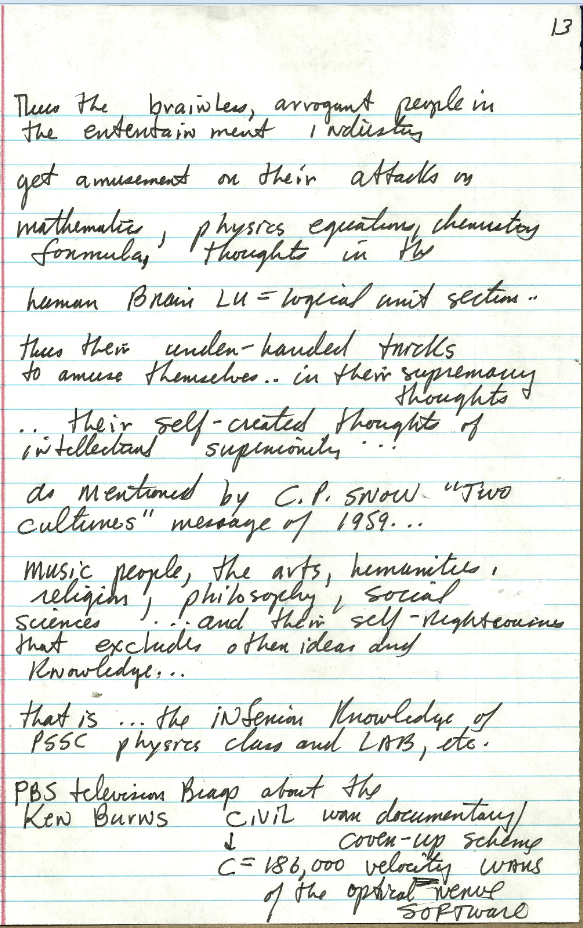 13
Thus the brainless, arrogant people in
the entertainment industry
get amusement on their attacks on
mathematics, physics equations, chemistry
formulas, thoughts in the
human Brain LU = logical unit section..
thus their under-handed tricks
to amuse themselves.. in their supremacy
thoughts
.. their self-created thoughts of
intellectual superiority ...
as mentioned by C.P. SNOW "Two
cultures" message of 1959...
music people, the arts, humanities,
religion, philosophy, social
sciences .... and their self-righteousness
that excludes other ideas and
knowledge...
that is ... the inferior knowledge of
PSSC physics class and LAB, etc.
PBS television Brags about the
Ken Burns Civil war documentary/
↓ cover-up scheme
C = 186,000 velocity wars
of the optical nerve
SOFTWARE